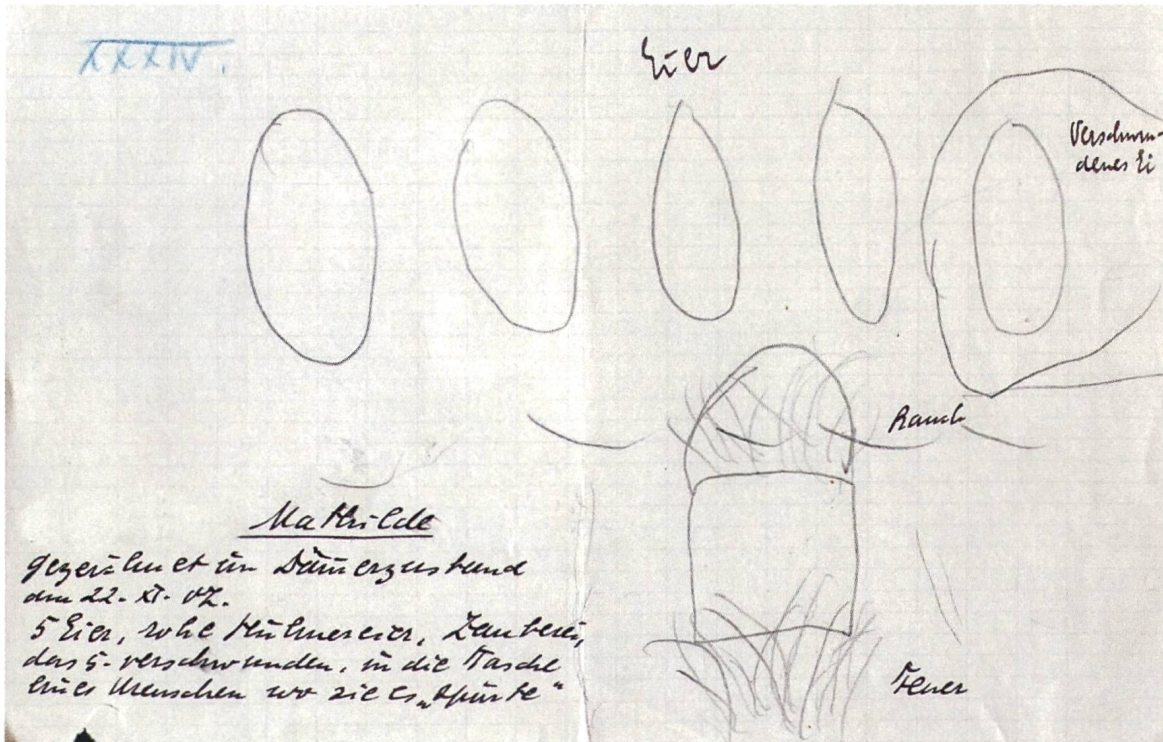 XXXIV.
Eier
Verschwun-
denes Ei
Rauch
Mathilde
gezeichnet im Dämerzustand
am 22. XI. 07.
5 Eier, rohe Hühnereier, Zauberei,
das 5. verschwunden, in die Tasche
eines Menschen wo sie es „spürte“
Feuer